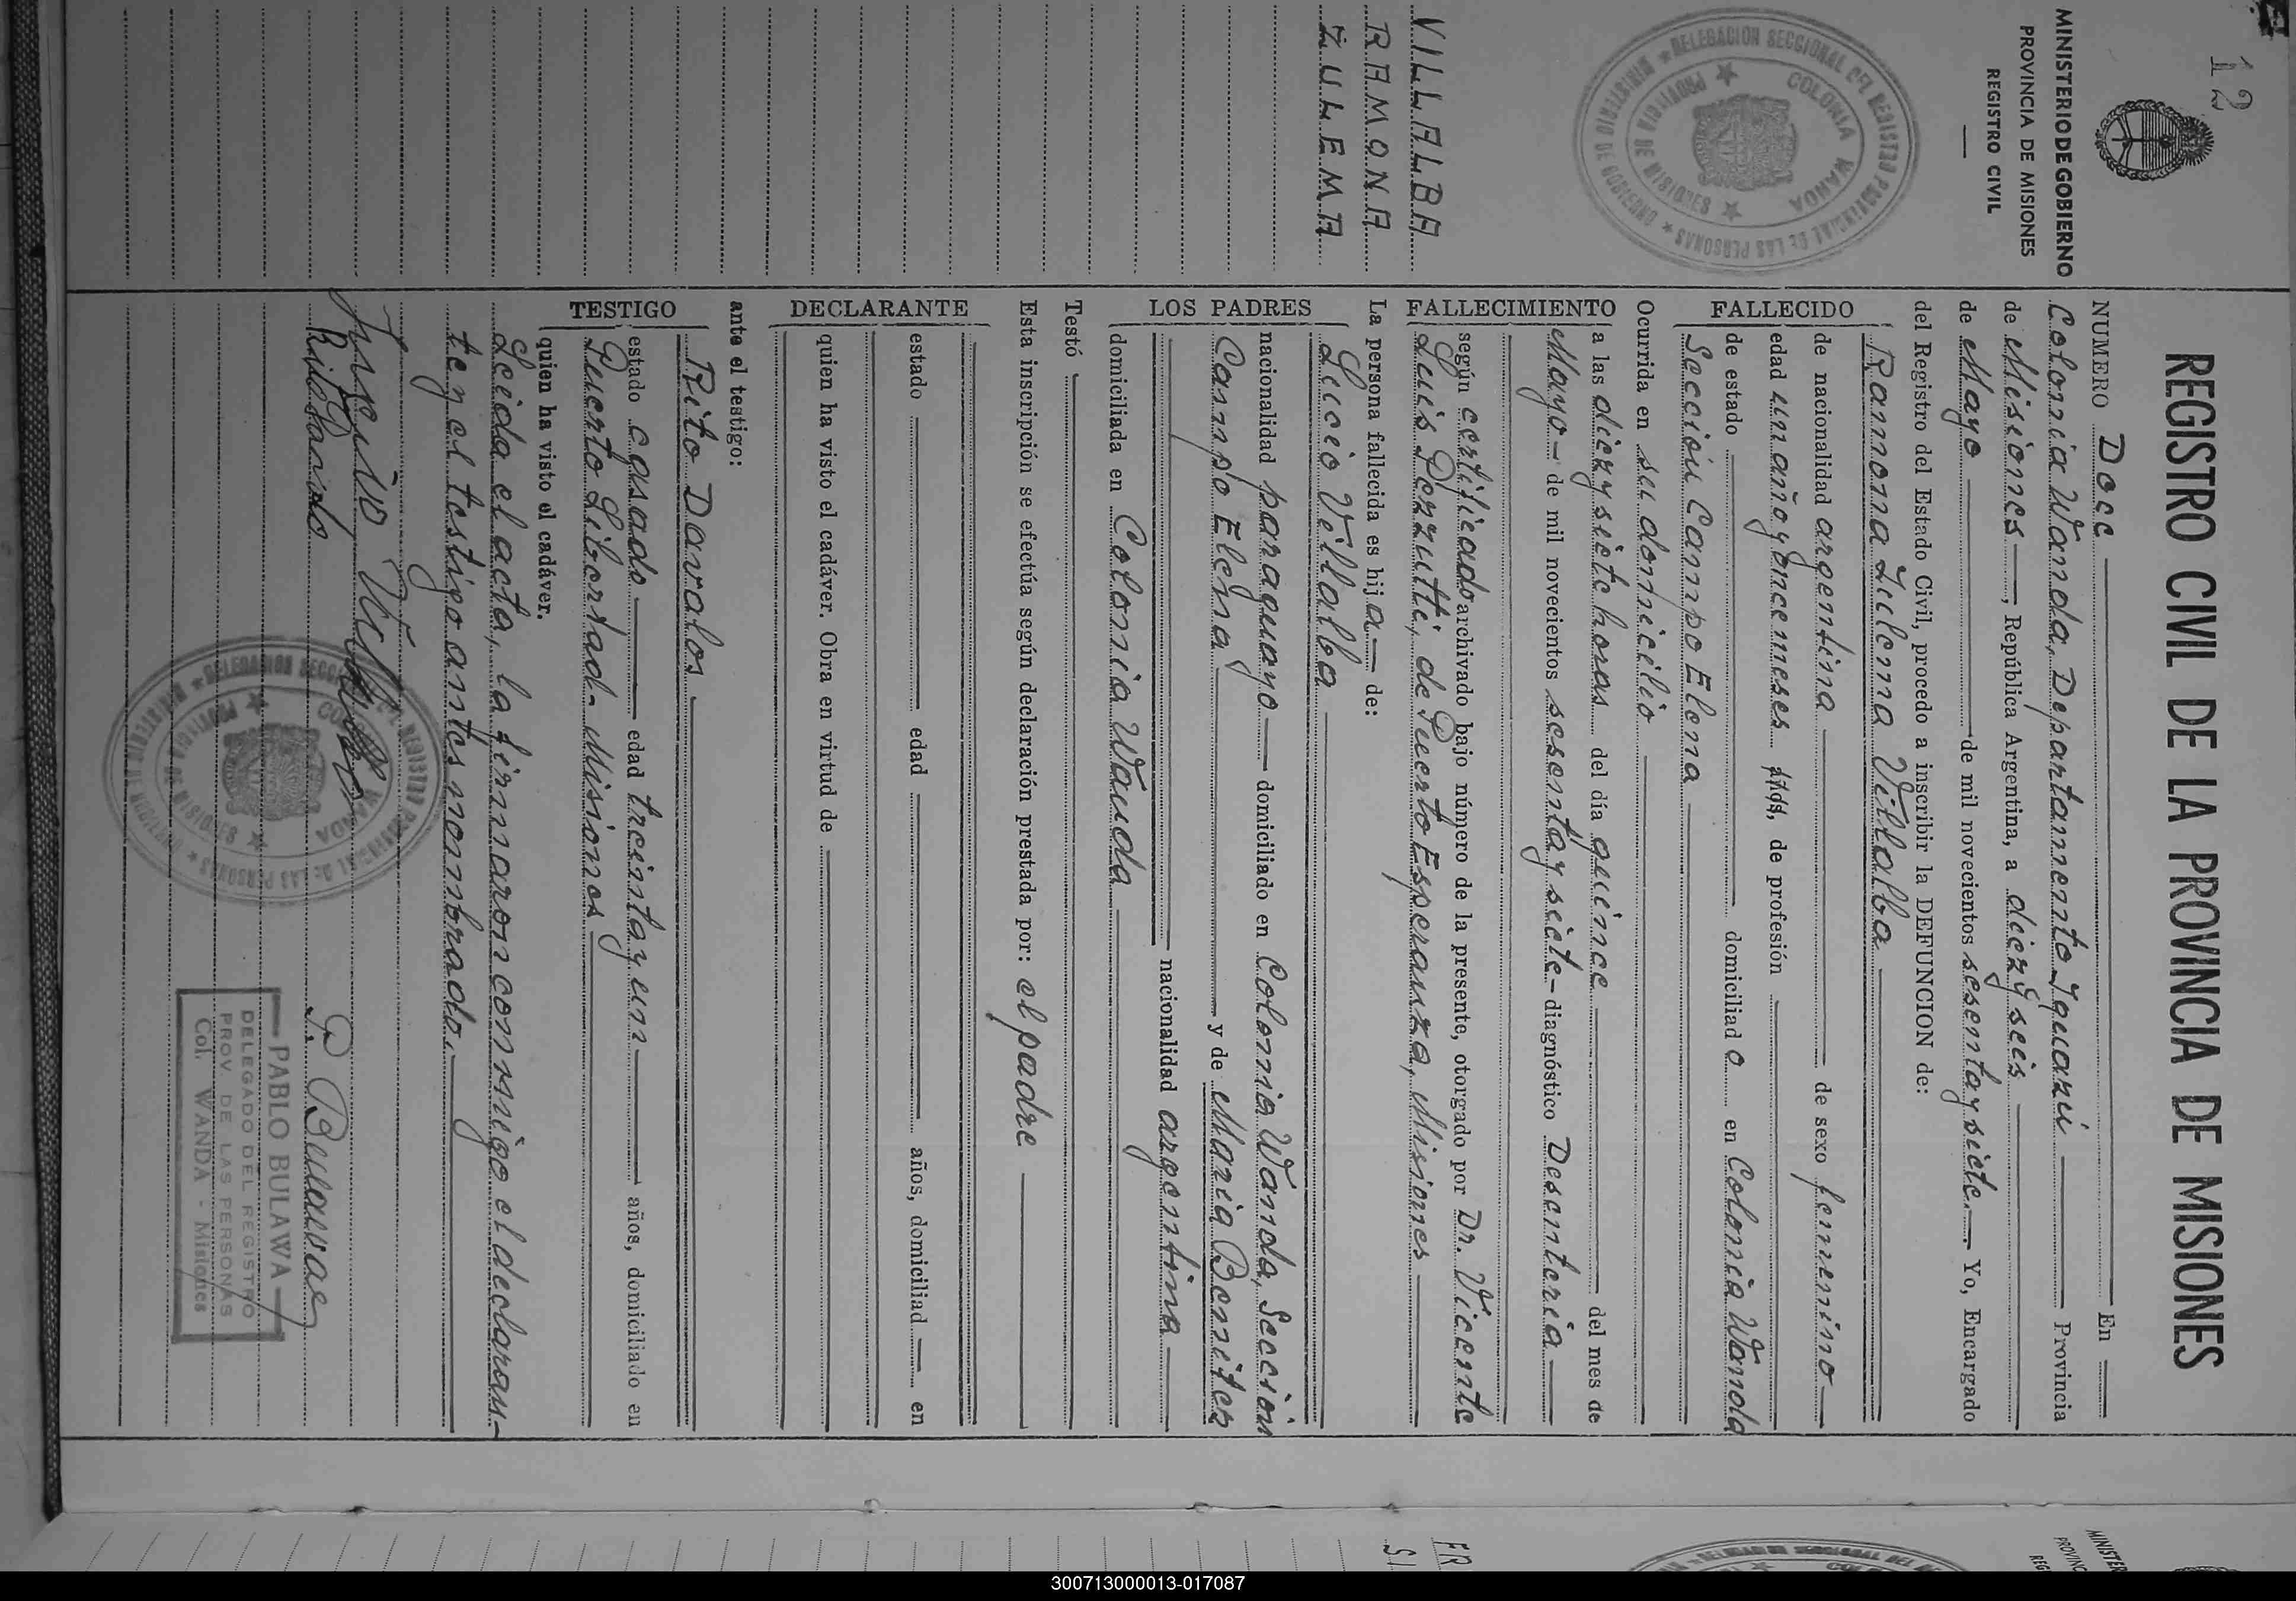 12
MINISTERIO DE GOBIERNO
PROVINCIA DE MISIONES
REGISTRO CIVIL
DELEGACION SECCIONAL DEL REGISTRO PROVINCIAL DE LAS PERSONAS ★ MINISTERIO DE GOBIERNO ★
COLONIA WANDA ★ PROVINCIA DE MISIONES ★
VILLALBA
RAMONA
ZULEMA
REGISTRO CIVIL DE LA PROVINCIA DE MISIONES
NUMERO Doce En
Colonia Wanda, Departamento Iguazú Provincia
de Misiones, República Argentina, a diez y seis
de Mayo de mil novecientos sesenta y siete. Yo, Encargado
del Registro del Estado Civil, procedo a inscribir la DEFUNCION de:
FALLECIDO
Ramona Zulema Villalba
de nacionalidad argentina de sexo femenino
edad un año y once meses años, de profesión
de estado domiciliad o en Colonia Wanda
Sección Campo Elena
Ocurrida en su domicilio
FALLECIMIENTO
a las diez y siete horas del día quince del mes de
Mayo de mil novecientos sesenta y siete diagnóstico Desenteria
según certificado archivado bajo número de la presente, otorgado por Dr. Vicente
Luis Pezzutti, de Puerto Esperanza, Misiones
La persona fallecida es hij a de:
LOS PADRES
Lucio Villalba
nacionalidad paraguayo domiciliado en Colonia Wanda, Sección
Campo Elena y de Maria Benitez
nacionalidad argentina
domiciliada en Colonia Wanda
Testó
Esta inscripción se efectúa según declaración prestada por: el padre
DECLARANTE
estado edad años, domiciliad en
quien ha visto el cadáver. Obra en virtud de
ante el testigo:
TESTIGO
Rito Davalos
estado casado edad treinta y un años, domiciliado en
Puerto Libertad - Misiones
quien ha visto el cadáver.
Leida el acta, la firmaron conmigo el declaran-
te y el testigo antes nombrado.
P. Bulawa
PABLO BULAWA
DELEGADO DEL REGISTRO
PROV. DE LAS PERSONAS
Col. WANDA - Misiones
MINISTER
PROVINC
REG
FR
SI
300713000013-017087